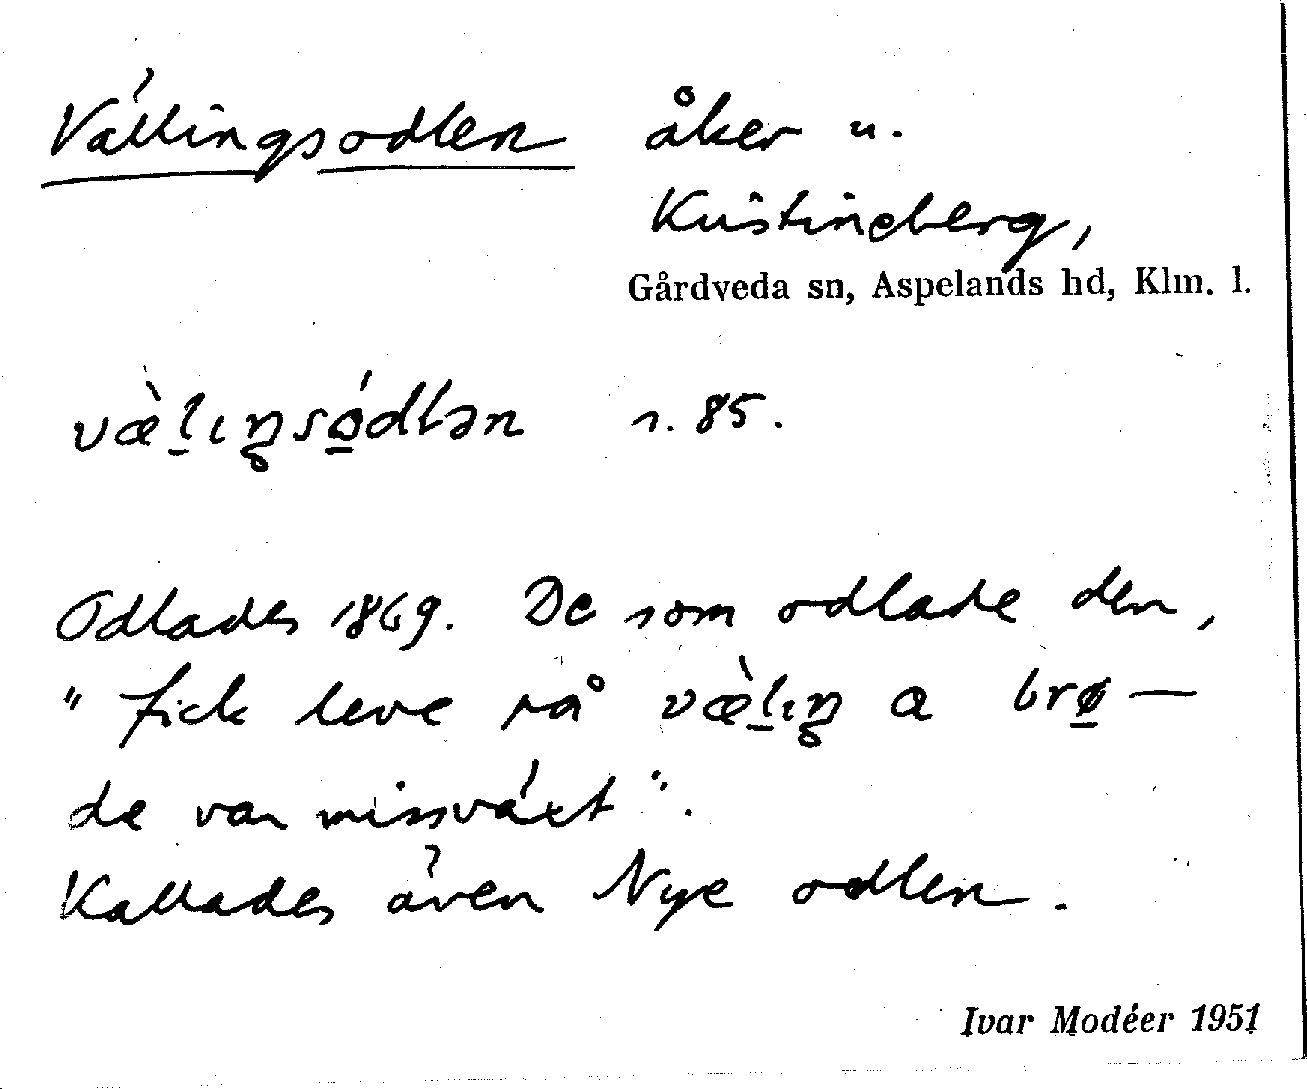 Vällingsodlen åker u.
Kristineberg,
Gårdveda sn, Aspelands hd, Klm. l.
væ̀l̠ıŋsǿ̠dlən s. 85.
Odlades 1869. De som odlade den,
" fick leve på væ̀l̠ıŋ a brø̠ —
de var missväxt".
Kallades även Nye odlen.
Ivar Modéer 1951